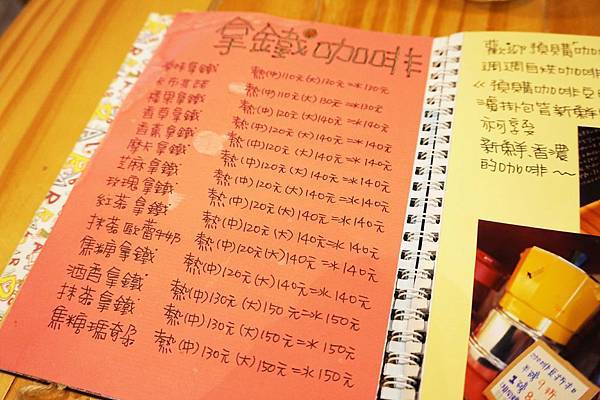 拿鐵咖啡
原味拿鐵 熱(中)110元(大)130元=冰130元
卡布其諾 熱(中)110元(大)130元=冰130元
榛果拿鐵 熱(中)120元(大)140元=冰140元
香草拿鐵 熱(中)120元(大)140元=冰140元
香素拿鐵 熱(中)120元(大)140元=冰140元
摩卡拿鐵 熱(中)120元(大)140元=冰140元
芝麻拿鐵 熱(中)120元(大)140元=冰140元
玫瑰拿鐵 熱(中)120元(大)140元=冰140元
紅茶拿鐵 熱(中)120元(大)140元=冰140元
抹茶歐蕾牛奶 熱(中)120元(大)140元=冰140元
焦糖拿鐵 熱(中)120元(大)140元=冰140元
酒香拿鐵 熱(中)130元(大)150元=冰150元
抹茶拿鐵 熱(中)130元(大)150元=冰150元
焦糖瑪奇朵 熱(中)130元(大)150元=冰150元
歡迎預購"咖
週週自烘咖啡
《預購咖啡豆
濾掛包皆新鮮
新鮮、香濃
的咖啡~~
咖啡豆折扣
1磅 8